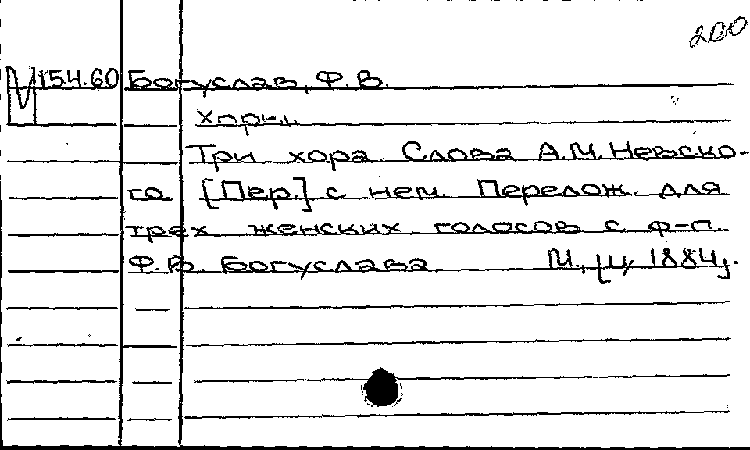 200
М 154.60 Богуслав, Ф. В.
Хоры.
Три хора. Слова А. М. Невско-
го [Пер.] с нем. Перелож. для
трех женских голосов с ф-п.
Ф. В. Богуслава. М., [ц. 1884].